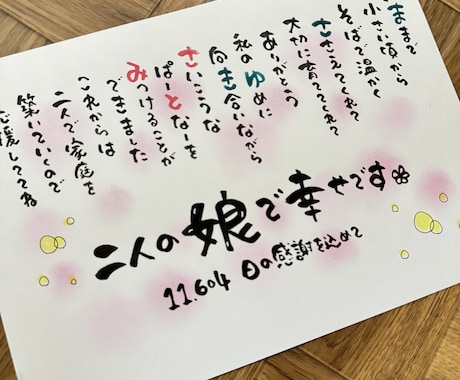 ままで
小さい頃から
そばで温かく
ささえてくれて
大切に育ててくれて
ありがとう
私のゆめに
向き合いながら
さいこうな
ぱーとなーを
みつけることが
できました
これからは
二人で家庭を
築いていくので
応援しててね
二人の娘で幸せです
11.604 日の感謝を込めて